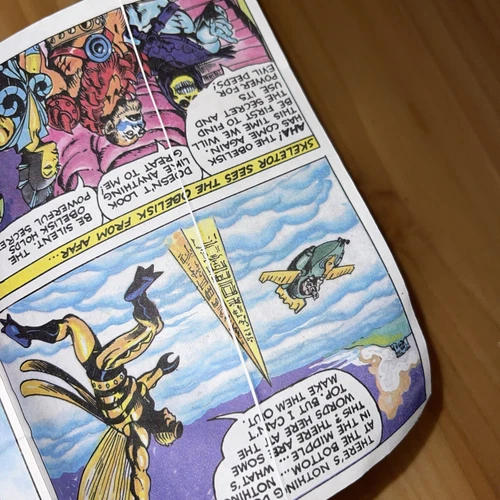 THERE'S NOTHING
AT THE BOTTOM... NOTHING
IN THE MIDDLE... WHAT'S
THIS? THERE ARE SOME
WORDS HERE AT THE
TOP, BUT I CAN'T
MAKE THEM OUT.
SKELETOR SEES THE OBELISK FROM AFAR...
AHA! THE OBELISK
HAS COME AGAIN!
THIS TIME WE WILL
BE FIRST TO FIND
THE SECRET AND
USE ITS
POWER FOR
EVIL DEEDS!
DOESN'T LOOK
LIKE ANYTHING
GREAT TO ME!
BE SILENT. THE
OBELISK HOLDS
POWERFUL